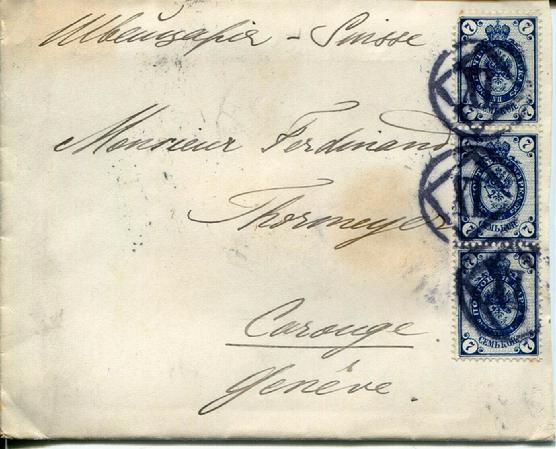 Швейцарія - Suisse
Monsieur Ferdinand
Thormeyer
Carouge.
Genève.
7 7
СЕМЬ КОП.
7 7
СЕМЬ КОП.
7 7
СЕМЬ КОП.